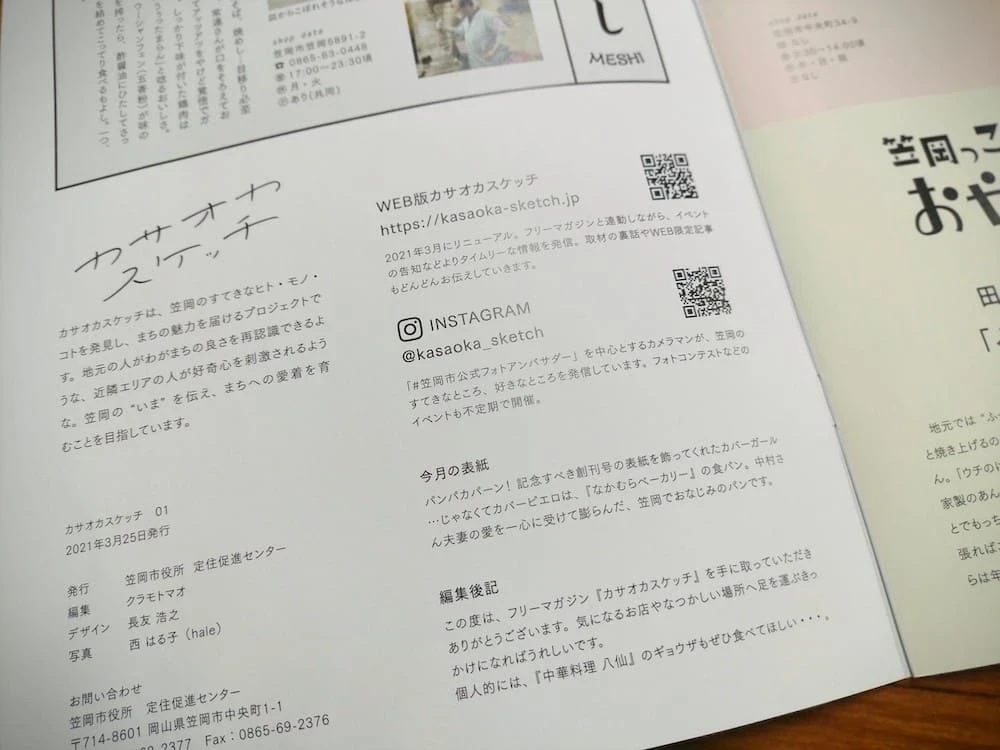 し
MESHI
shop data
笠岡市笠岡5891-2
☎ 0865-63-0448
17:00〜23:30頃
月・火
あり(共同)
カサオカ
スケッチ
カサオカスケッチは、笠岡のすてきなヒト・モノ・
コトを発見し、まちの魅力を届けるプロジェクトで
す。地元の人がわがまちの良さを再認識できるよ
うな、近隣エリアの人が好奇心を刺激されるよう
な。笠岡の “いま” を伝え、まちへの愛着を育
むことを目指しています。
カサオカスケッチ 01
2021年3月25日発行
発行 笠岡市役所 定住促進センター
編集 クラモトマオ
デザイン 長友 浩之
写真 西 はる子（hale）
お問い合わせ
笠岡市役所 定住促進センター
〒714-8601 岡山県笠岡市中央町1-1
69-2377 Fax：0865-69-2376
WEB版カサオカスケッチ
https://kasaoka-sketch.jp
2021年3月にリニューアル。フリーマガジンと連動しながら、イベント
の告知などよりタイムリーな情報を発信。取材の裏話やWEB限定記事
もどんどんお伝えしていきます。
INSTAGRAM
@kasaoka_sketch
「#笠岡市公式フォトアンバサダー」を中心とするカメラマンが、笠岡の
すてきなところ、好きなところを発信しています。フォトコンテストなどの
イベントも不定期で開催。
今月の表紙
パンパカパーン！記念すべき創刊号の表紙を飾ってくれたカバーガール
…じゃなくてカバーピエロは、『なかむらベーカリー』の食パン。中村さ
ん夫妻の愛を一心に受けて膨らんだ、笠岡でおなじみのパンです。
編集後記
この度は、フリーマガジン『カサオカスケッチ』を手に取っていただき
ありがとうございます。気になるお店やなつかしい場所へ足を運ぶきっ
かけになればうれしいです。
個人的には、『中華料理 八仙』のギョウザもぜひ食べてほしい・・・。
shop data
笠岡市中央町34-9
なし
なし
笠岡っこ
おや
田
地元では “ふ
と焼き上げるの
ん。「ウチのに
家製のあん
とでもっち
張れば
らは年